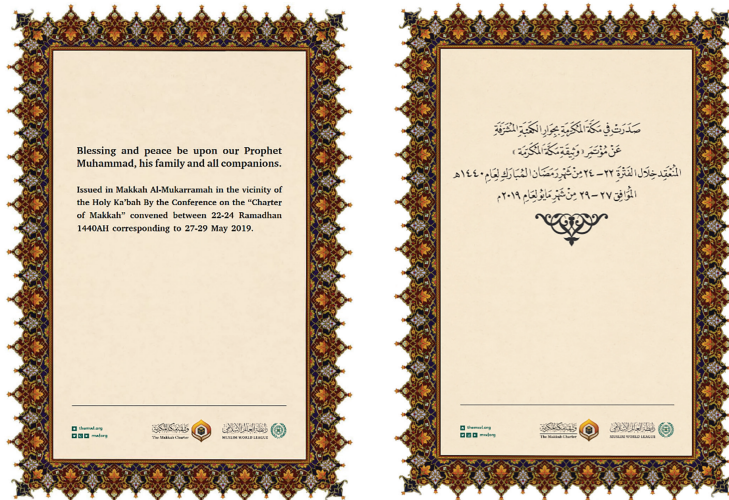 Blessing and peace be upon our Prophet
Muhammad, his family and all companions.
Issued in Makkah Al-Mukarramah in the vicinity of
the Holy Ka'bah By the Conference on the “Charter
of Makkah” convened between 22-24 Ramadhan
1440AH corresponding to 27-29 May 2019.
themwl.org
mwlorg
وثيقة مكة المكرمة
The Makkah Charter
رابطة العالم الإسلامي
MUSLIM WORLD LEAGUE
صَدَرَتْ فِي مَكَّةَ الْمُكَرَّمَةِ بِجِوَارِ الْكَعْبَةِ الْمُشَرَّفَةِ
عَنْ مُؤْتَمَرِ « وَثِيقَةِ مَكَّةَ الْمُكَرَّمَةِ »
الْمُنْعَقِدِ خِلَالَ الْفَتْرَةِ ٢٢ – ٢٤ مِنْ شَهْرِ رَمَضَانَ الْمُبَارَكِ لِعَامِ ١٤٤٠هـ
الْمُوَافِقِ ٢٧ – ٢٩ مِنْ شَهْرِ مَايُو لِعَامِ ٢٠١٩م
themwl.org
mwlorg
وثيقة مكة المكرمة
The Makkah Charter
رابطة العالم الإسلامي
MUSLIM WORLD LEAGUE